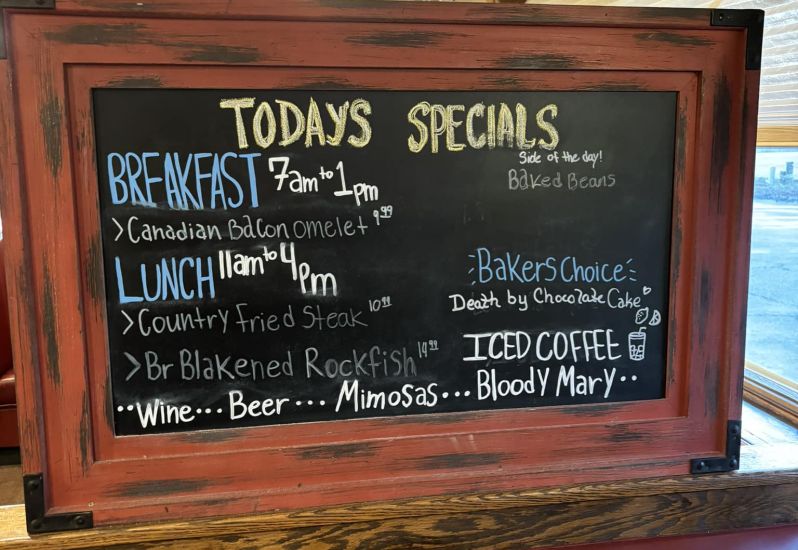 TODAYS SPECIALS
BREAKFAST 7am to 1pm
>Canadian Bacon omelet 9.99
LUNCH 11am to 4pm
>Country Fried Steak 10.99
>Br Blakened Rockfish 14.99
Side of the day!
Baked Beans
Bakers Choice
Death by Chocolate Cake
ICED COFFEE
..Wine... Beer... Mimosas... Bloody Mary..